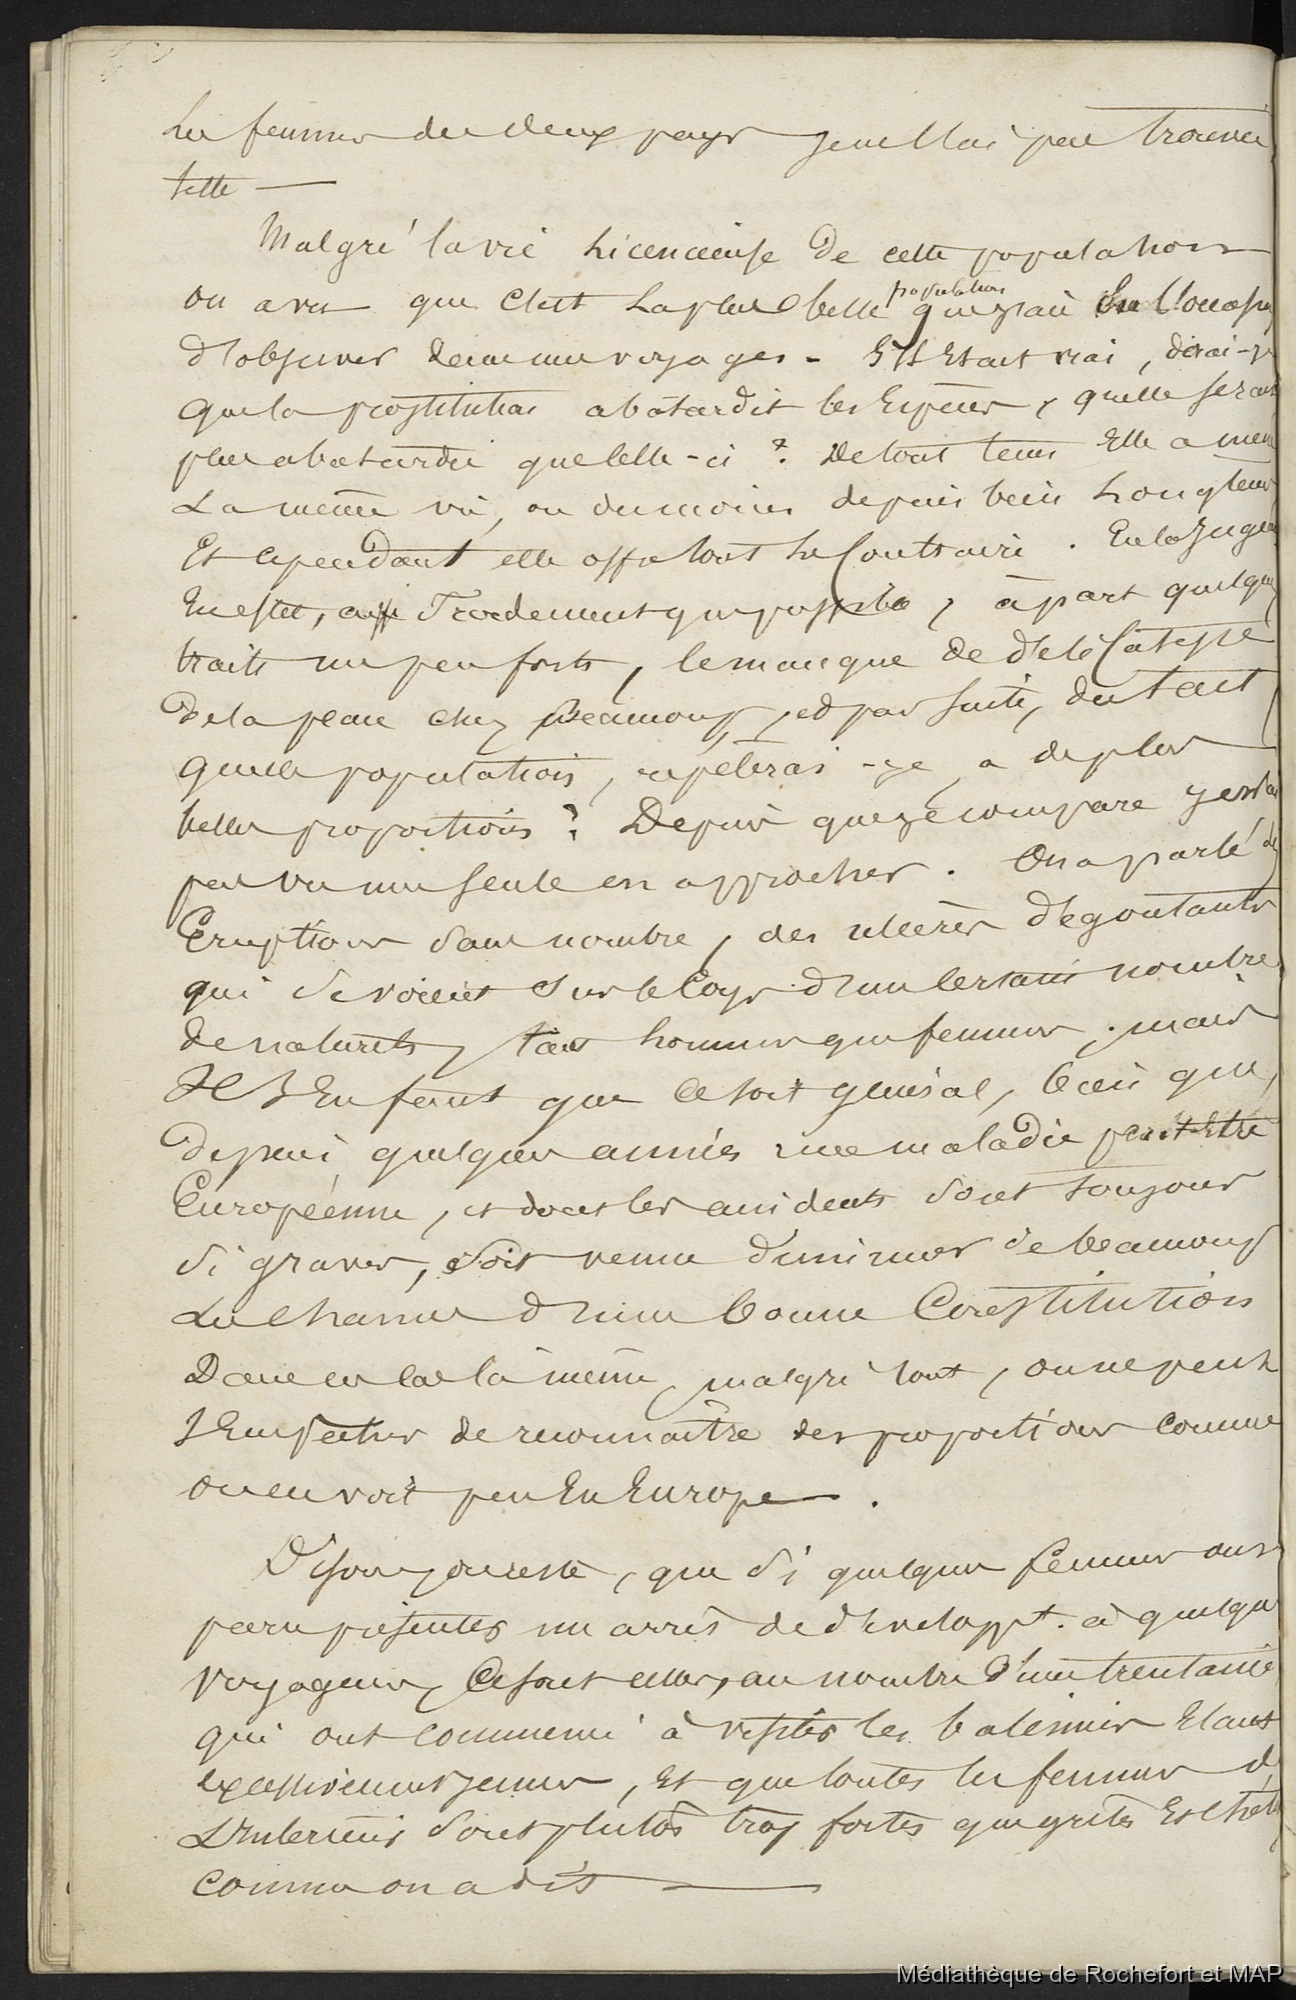 les femmes des deux pays je ne l'ai pas trouvée
telle —
Malgré la vie licencieuse de cette population
on a vu que c'est la plus belle population que j'aie eu l'occasion
d'observer dans mes voyages - S'il etait vrai, dirai-je
que la prostitution abatardit les Espèces, quelle serait
plus abatardie que celle-ci ? De tout tems Elle a mené
La même vie, ou du moins depuis bien Longtems
Et cependant elle offre tout le Contraire. En la Jugeant
En effet, aussi froidement que possible, à part quelques
traits un peu forts, le manque de délicatesse
de la peau chez Beaucoup, et par suite, du tact
quelle population, repèterai-je, a de plus
belles proportions ? Depuis que je compare je n'en ai
pas vu une seule en approcher. On a parlé des
Eruptions sans nombre, des ulcères dégoutants
qui se voient sur le Corps d'un Certain nombre
de naturels, tant hommes que femmes ; mais
Il s'En faut que ce soit général, bien que,
depuis quelques années une maladie peut Etre
Européenne, et dont les accidents sont toujours
si graves, soit venue diminuer de beaucoup
Les chances d'une bonne Constitution
Dans ce cas là même, malgré tout, on ne peut
s'Empêcher de reconnaître des proportions comme
on en voit peu En Europe —.
Disons, du reste, que si quelques femmes ont
paru présenter un arrêt de développt. à quelques
voyageurs, Ce sont celles, au nombre d'une trentaine
qui ont commencé à visiter les baleiniers Etant
excessivement jeunes, Et que toutes les femmes de
L'Interieur sont plutôt trop fortes que grêles Et
comme on a dit —